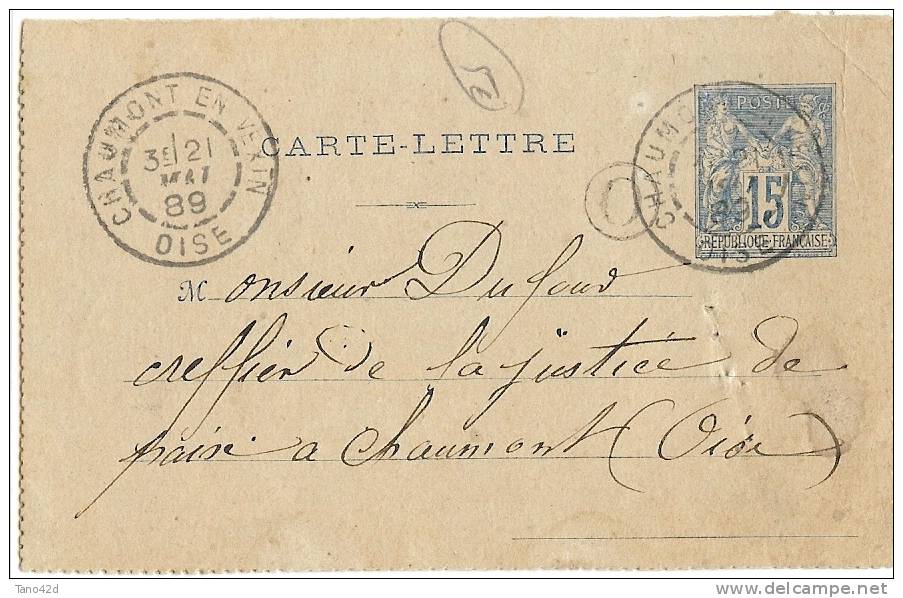 25
CHAUMONT EN VEXIN
3E 21
MAI
89
OISE
CARTE-LETTRE
O
CHAUMO
89
OISE
POSTE
15
REPUBLIQUE FRANCAISE
Monsieur Dufour
creffier de la justice de
paix a Chaumont (Oise)
Tano42d
www.delcampe.net